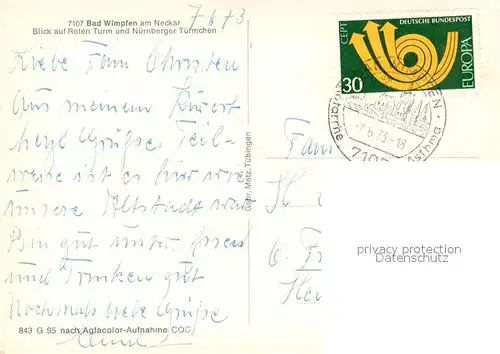 7107 Bad Wimpfen am Neckar
Blick auf Roten Turm und Nürnberger Türmchen
7673
Liebe Fam
Aus meinem Kurort
herzl Grüße. Teil-
weise ist es hier wie
unsere Altstadt war
Bin gut unter. Essen
und Trinken gut
Nochmals liebe Grüße
843 G 95 nach Agfacolor-Aufnahme CQC
Gebr. Metz, Tübingen
CEPT
DEUTSCHE BUNDESPOST
EUROPA
30
-7.6.73-18
7107
Asthma
Fam
H
privacy protection
Datenschutz